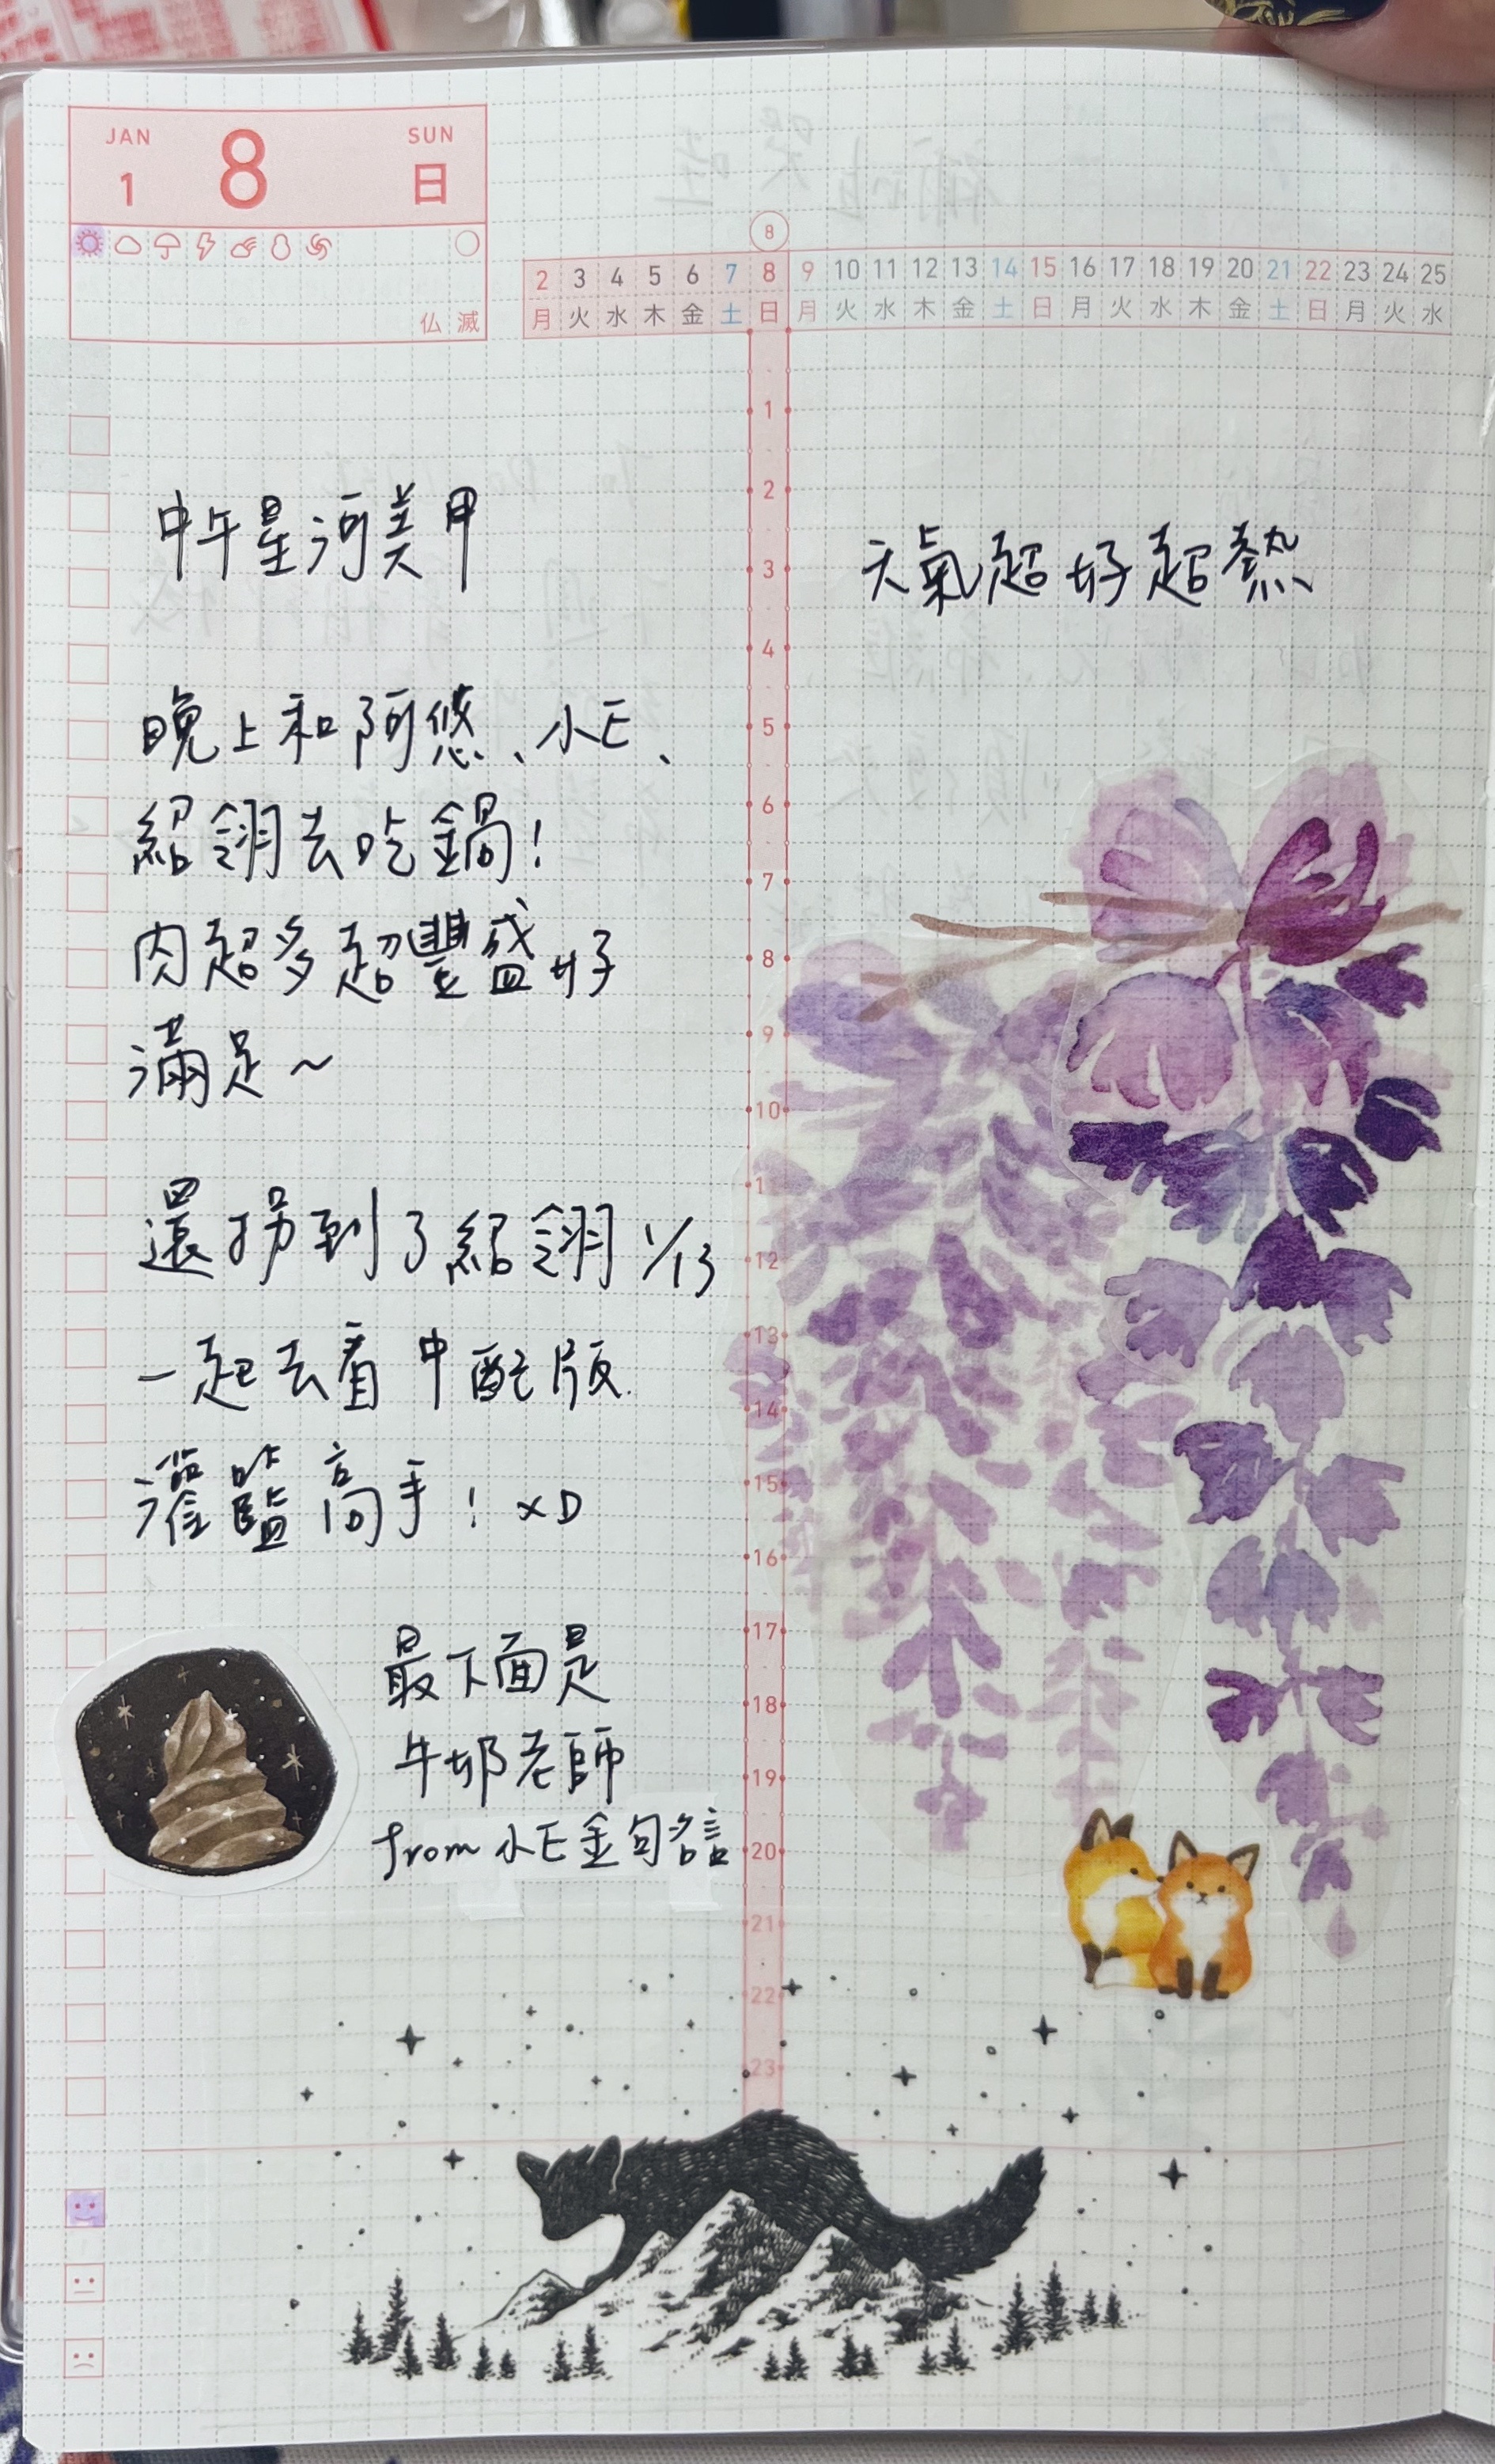 JAN
1
8
SUN
日
仏滅
8
2 3 4 5 6 7 8 9 10 11 12 13 14 15 16 17 18 19 20 21 22 23 24 25
月 火 水 木 金 土 日 月 火 水 木 金 土 日 月 火 水 木 金 土 日 月 火 水
1
2
3
4
5
6
7
8
9
10
11
12
13
14
15
16
17
18
19
20
21
22
23
中午星河美甲
晚上和阿悠、小E、
紹翎去吃鍋!
肉超多超豐盛好
滿足~
還拐到了紹翎1/13
一起去看中配版
灌籃高手! XD
最下面是
牛奶老師
from 小E金句名言
天氣超好超熱